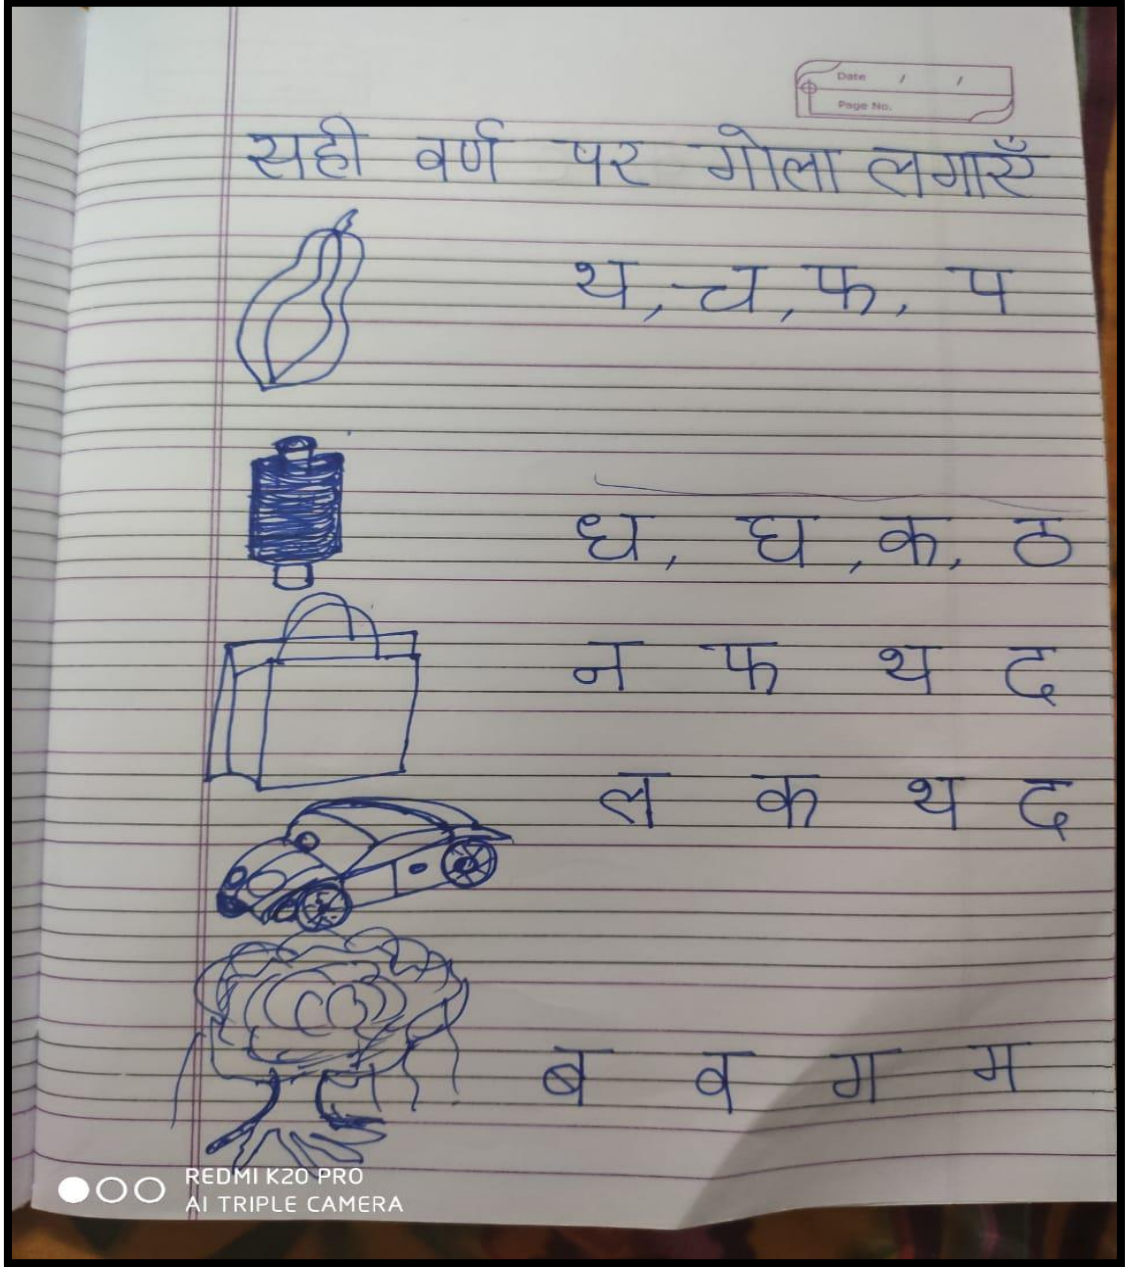 Date / /
Page No.
सही वर्ण पर गोला लगाएँ
थ, च, फ, प
ध, घ, क, ठ
न फ थ द
ल क थ द
ब व ग म
REDMI K20 PRO
AI TRIPLE CAMERA